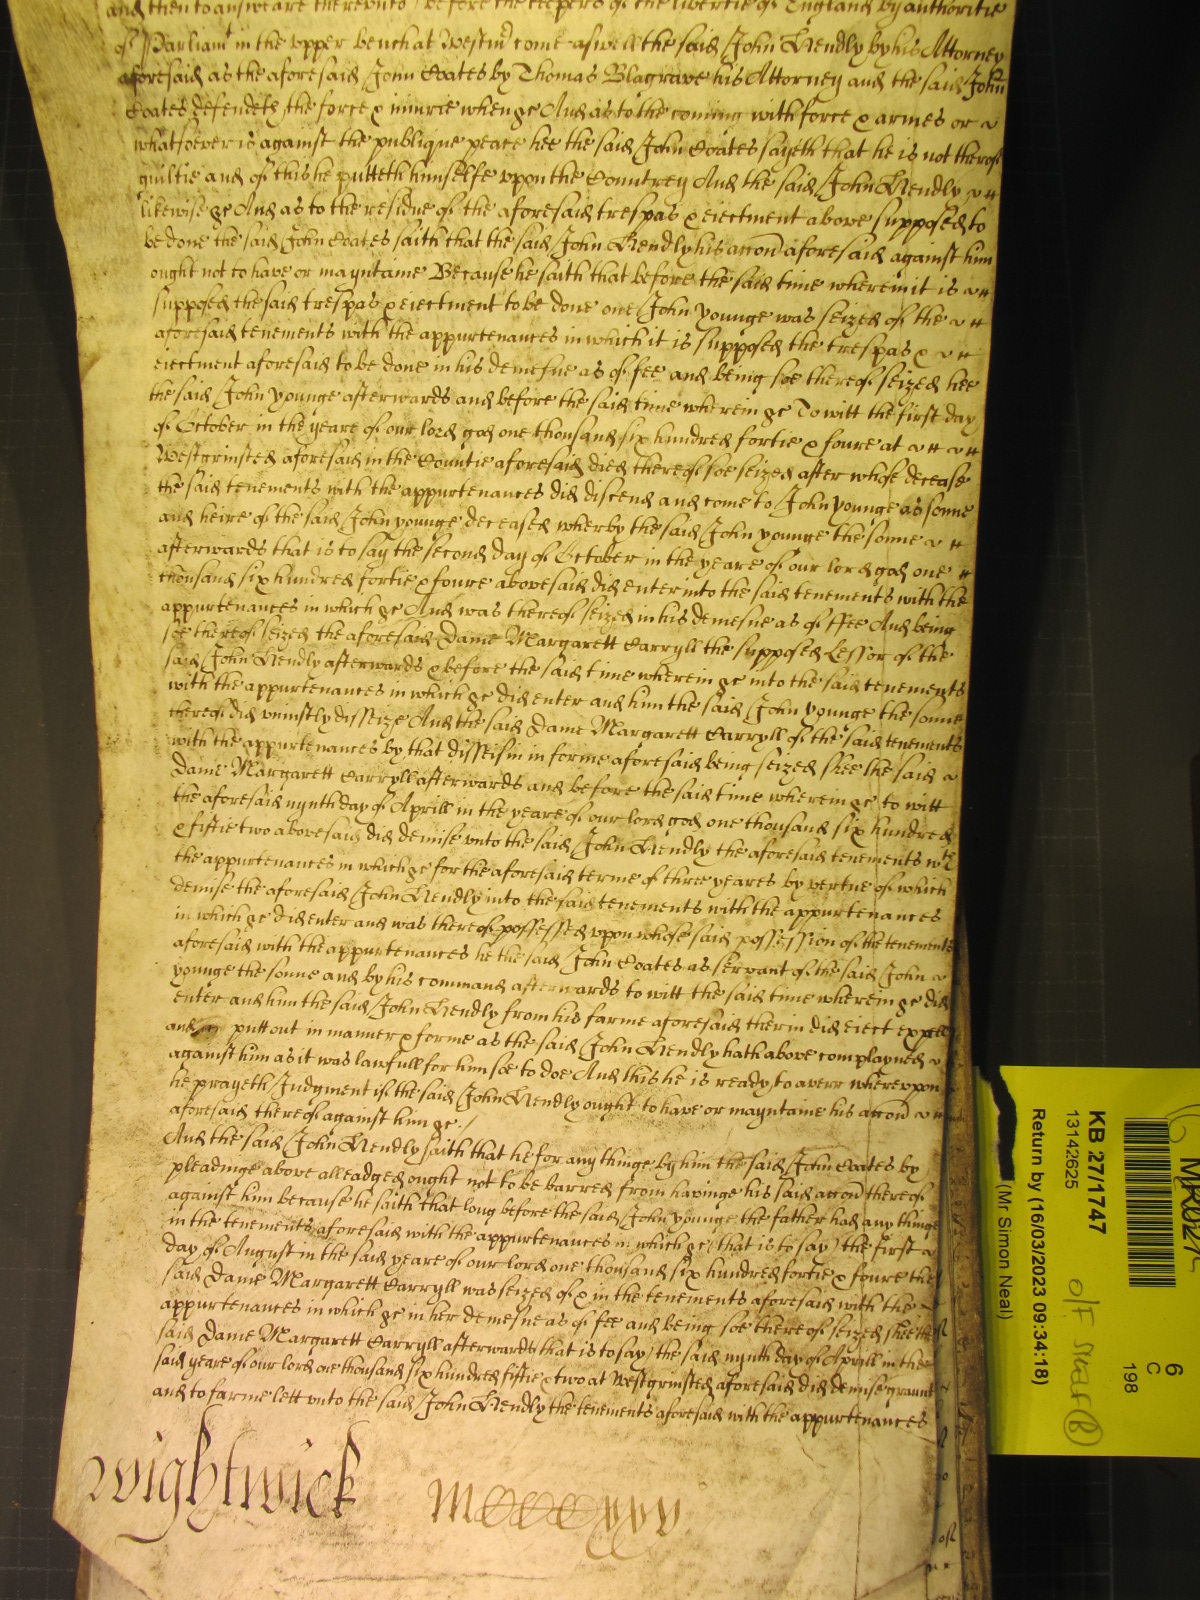 and then to answeare therevnto before the keepers of the libertie of England by authoritie
of Parliamt in the vpper bench at Westmr come aswell the said John Hendly by his Attorney
aforesaid as the aforesaid John Coates by Thomas Blagrave his Attorney and the said John
Coates defendeth the force & iniurie when &c And as to the coming with force & armes or
whatsoever is against the publique peace hee the said John Coates saieth that he is not therof
guiltie and of this he putteth himselfe vpon the Countrey And the said John Hendly
likewise &c And as to the residue of the aforesaid trespas & eiectment above supposed to
be done the said John Coates saith that the said John Hendly his accon aforesaid against him
ought not to have or mayntaine Because he saith that before the said time wherein it is
supposed the said trespas & eiectment to be done one John Younge was seized of the
aforesaid tenements with the appurtenances in which it is supposed the trespas &
eiectment aforesaid to be done in his demesne as of fee and being soe thereof seized hee
the said John Younge afterwards and before the said time wherein &c To witt the first day
of October in the yeare of our lord god one thousand six hundred fortie & foure at
Westgrinsted aforesaid in the Countie aforesaid died thereof soe seized after whose decease
the said tenements with the appurtenances did discend and come to John Younge as sonne
and heire of the said John Younge deceased wherby the said John Younge the sonne
afterwards that is to say the second day of October in the yeare of our lord god one
thousand six hundred fortie & foure abovesaid did enter into the said tenements with the
appurtenances in which &c And was thereof seized in his demesne as of ffee And being
soe thereof seized the aforesaid Dame Margarett Carryll the supposed Lessor of the
said John Hendly afterwards & before the said time wherein &c into the said tenements
with the appurtenances in which &c did enter and him the said John Younge the sonne
thereof did vniustly disseize And the said Dame Margarett Carryll of the said tenements
with the appurtenances by that disseisin in forme aforesaid being seized shee the said
Dame Margarett Carryll afterwards and before the said time wherein &c to witt
the aforesaid nynth day of Aprill in the yeare of our lord god one thousand six hundred
& fiftie two abovesaid did demise vnto the said John Hendly the aforesaid tenements wth
the appurtenances in which &c for the aforesaid terme of three yeares by vertue of which
demise the aforesaid John Hendly into the said tenements with the appurtenances
in which &c did enter and was thereof possessed vpon whose said possession of the tenements
aforesaid with the appurtenances he the said John Coates as servant of the said John
Younge the sonne and by his command afterwards to witt the said time wherein &c did
enter and him the said John Hendly from his farme aforesaid therin did eiect expell
and putt out in manner & forme as the said John Hendly hath above complayned
against him as it was lawfull for him soe to doe And this he is ready to averr wherevpon
he prayeth Judgment if the said John Hendly ought to have or mayntaine his accon
aforesaid thereof against him &c./
And the said John Hendly saith that he for any thinge by him the said John Coates by
pleadinge above alleadged ought not to be barred from havinge his said accon thereof
against him because he saith that long before the said John Younge the father had any thinge
in the tenements aforesaid with the appurtenances in which &c (that is to say) the first
day of August in the said yeare of our lord one thousand six hundred fortie & foure the
said Dame Margarett Carryll was seized of & in the tenements aforesaid with the
appurtenances in which &c in her demesne as of fee and being soe thereof seized shee the
said Dame Margarett Carryll afterwards that is to say the said nynth day of Aprill in the
said yeare of our lord one thousand six hundred fiftie & two at Westgrinsted aforesaid did demise graunt
and to farme lett vnto the said John Hendly the tenements aforesaid with the appurtenances
Wightwick
6
C
198
KB 27/1747
13142625
Return by (16/03/2023 09:34:18)
(Mr Simon Neal)